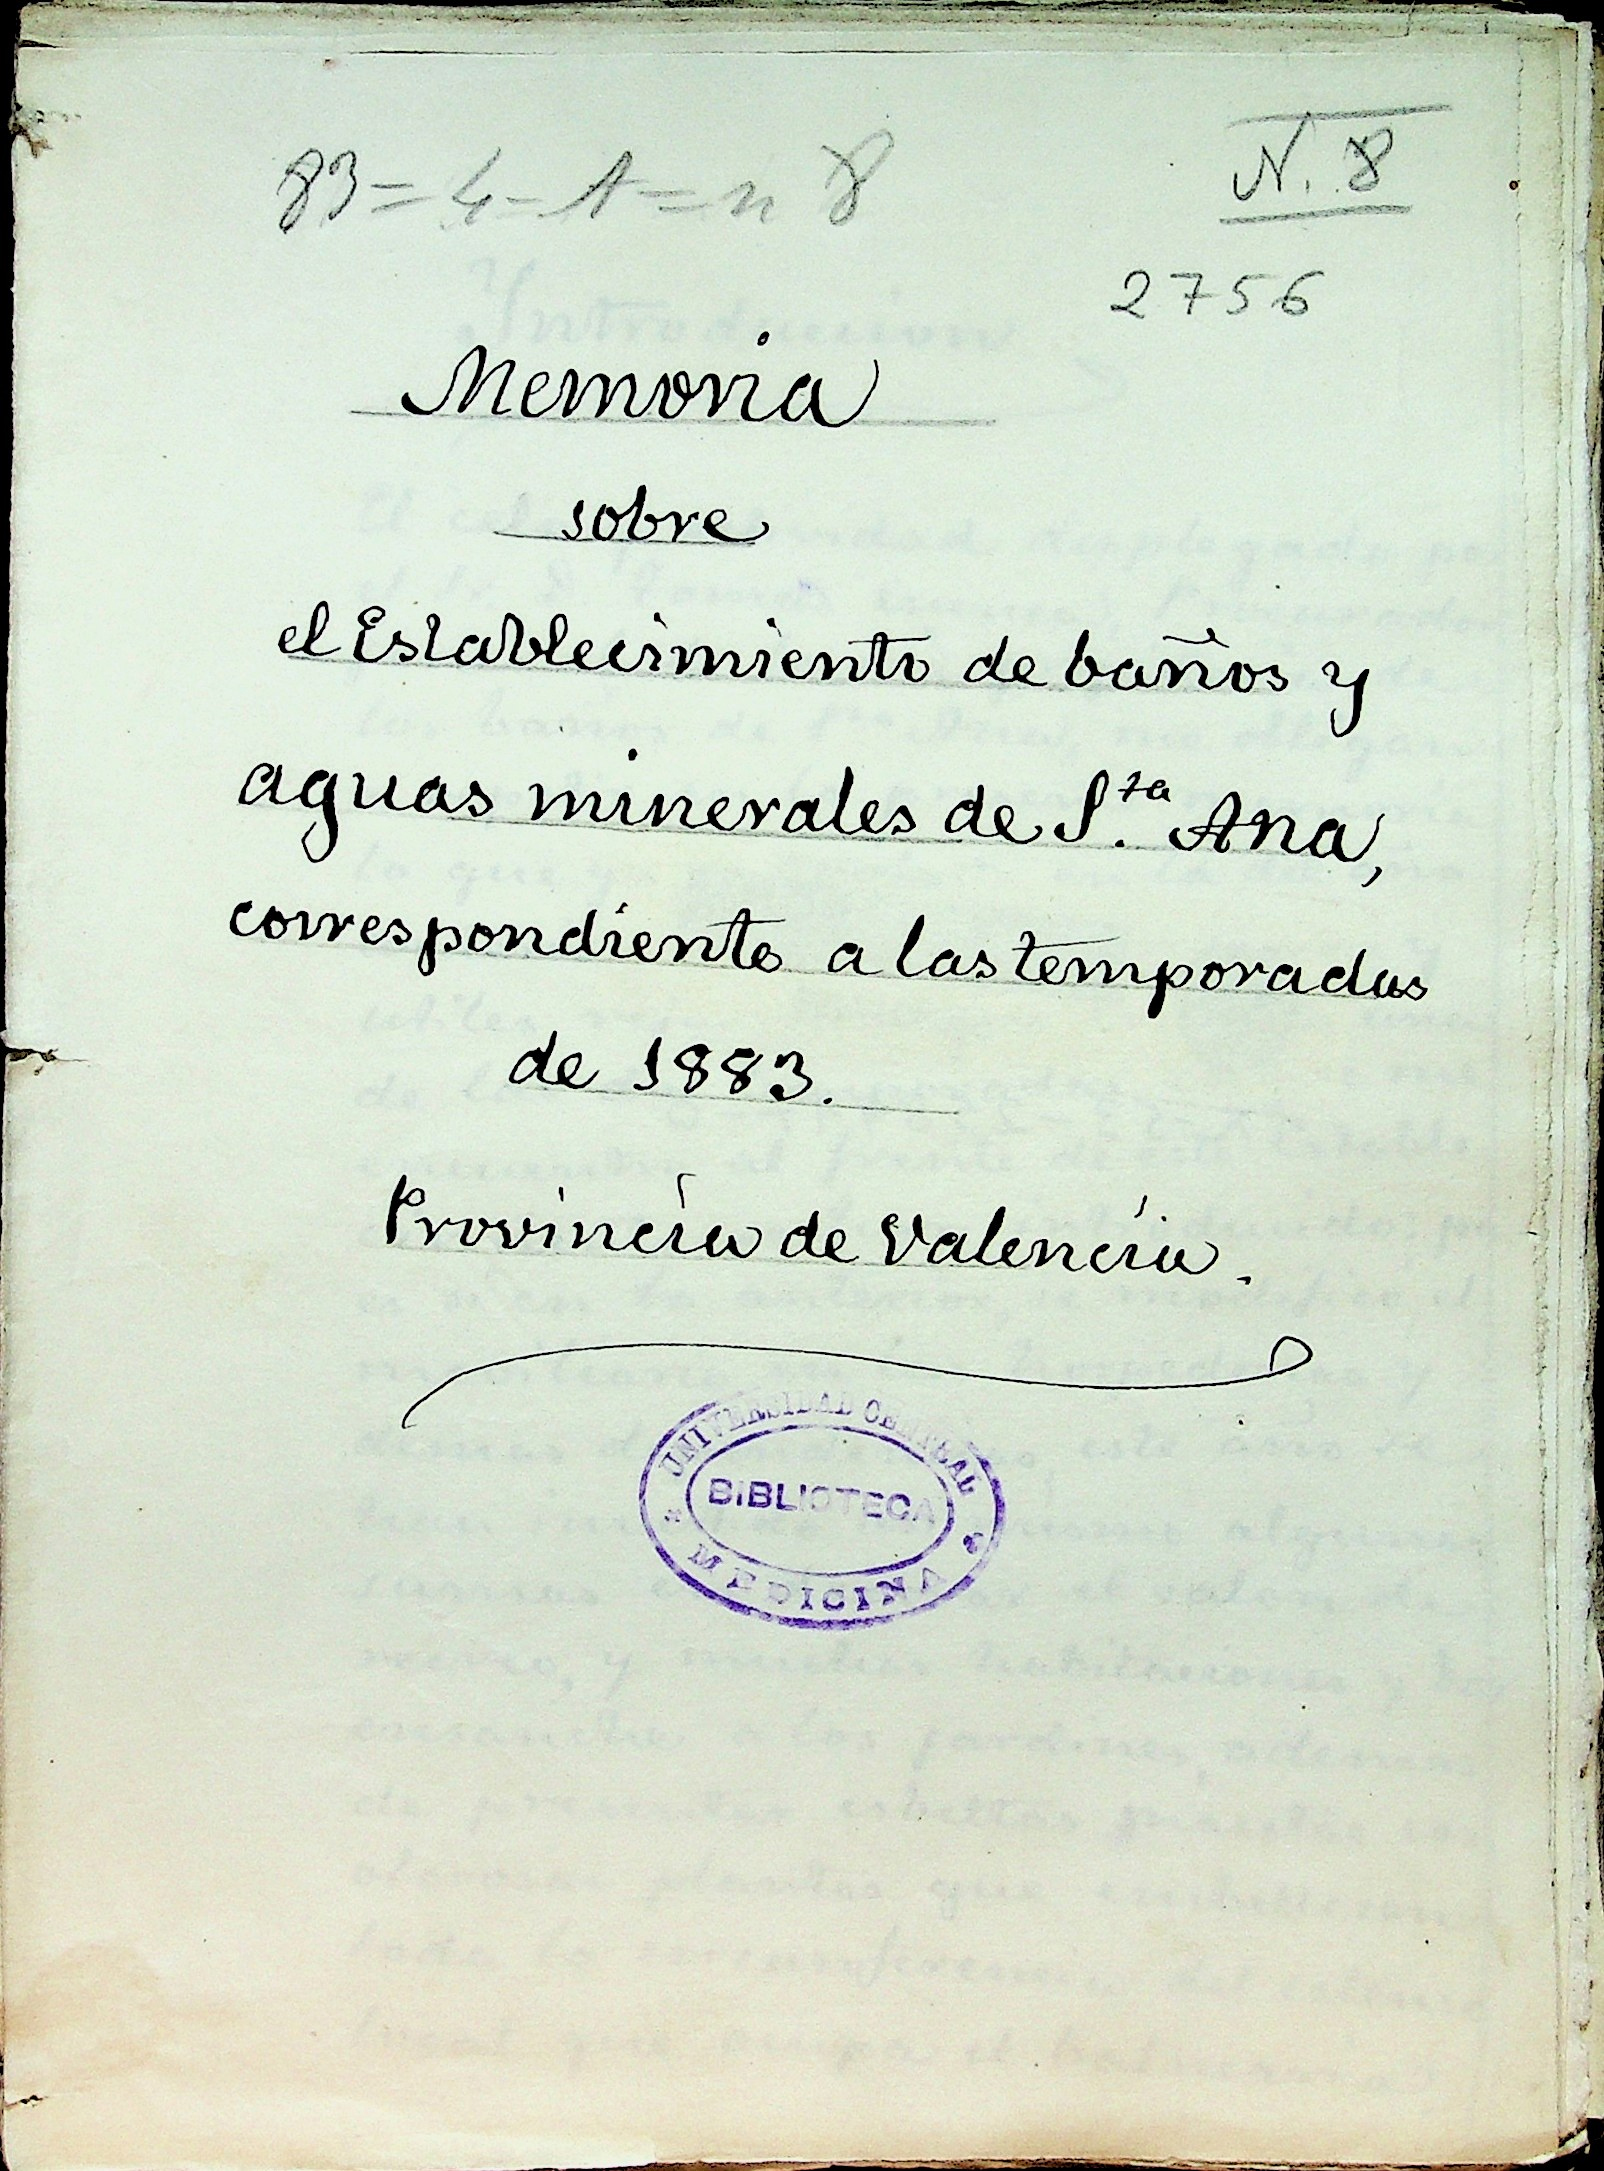 83=4-A=n 8
N. 8
2756
Memoria
sobre
el Establecimiento de baños y
aguas minerales de S.ta Ana,
correspondiente a las temporadas
de 1883.
Provincia de Valencia.
UNIVERSIDAD CENTRAL
BIBLIOTECA
MEDICINA